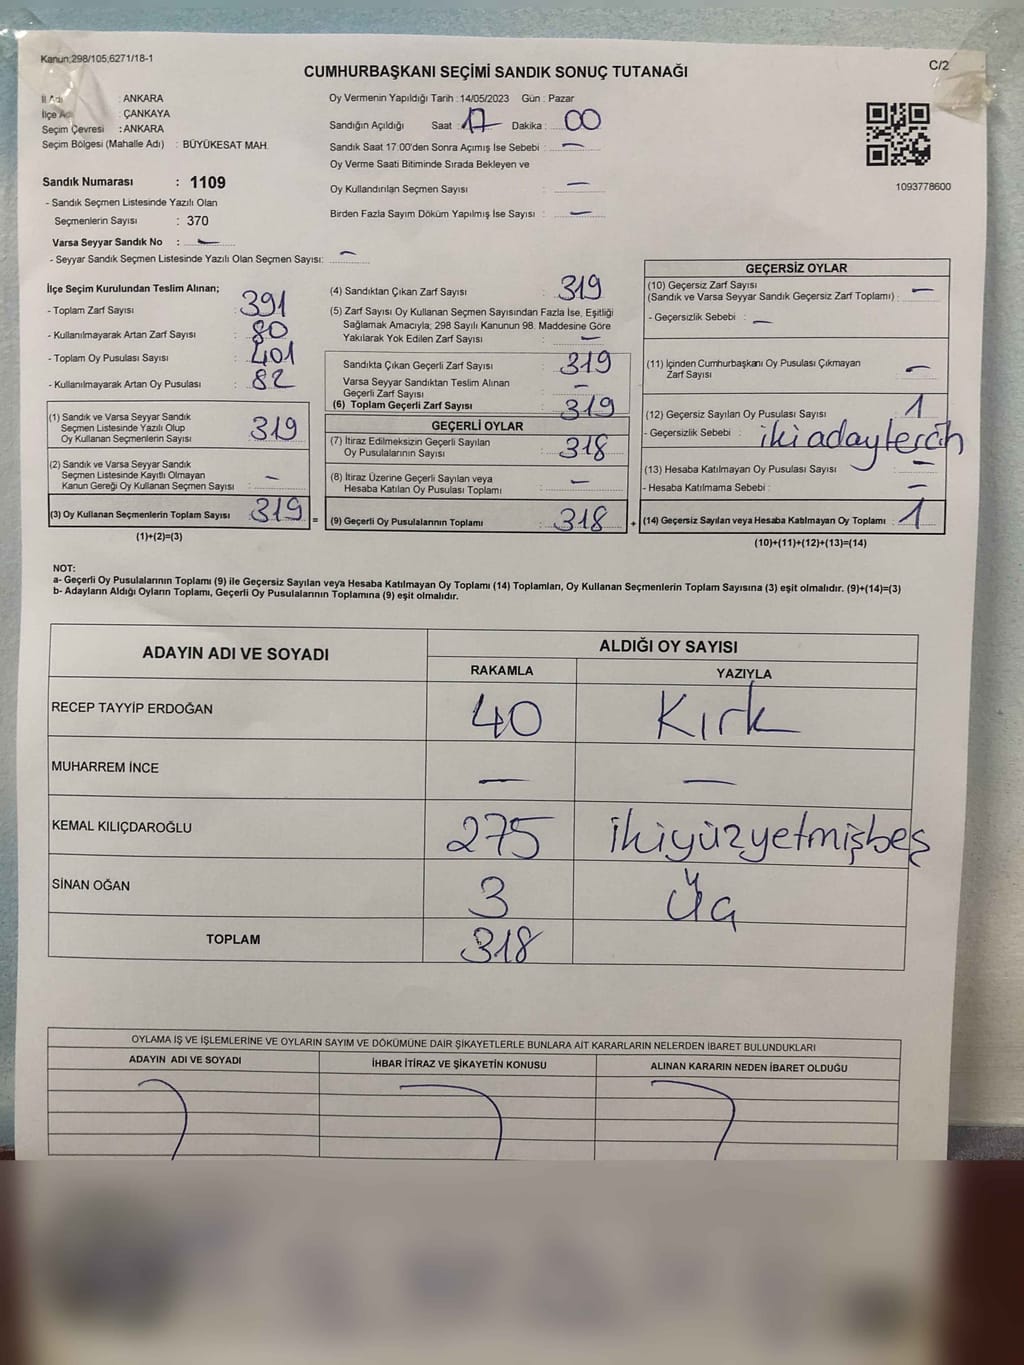 Kanun;298/105,6271/18-1
C/2
CUMHURBAŞKANI SEÇİMİ SANDIK SONUÇ TUTANAĞI
İl Adı : ANKARA
İlçe Adı : ÇANKAYA
Seçim Çevresi : ANKARA
Seçim Bölgesi (Mahalle Adı) : BÜYÜKESAT MAH.
Sandık Numarası : 1109
- Sandık Seçmen Listesinde Yazılı Olan
Seçmenlerin Sayısı : 370
Varsa Seyyar Sandık No : —
- Seyyar Sandık Seçmen Listesinde Yazılı Olan Seçmen Sayısı: —
Oy Vermenin Yapıldığı Tarih : 14/05/2023 Gün : Pazar
Sandığın Açıldığı Saat : 17 Dakika : 00
Sandık Saat 17:00'den Sonra Açılmış İse Sebebi : —
Oy Verme Saati Bitiminde Sırada Bekleyen ve
Oy Kullandırılan Seçmen Sayısı : —
Birden Fazla Sayım Döküm Yapılmış İse Sayısı : —
1093778600
İlçe Seçim Kurulundan Teslim Alınan;
- Toplam Zarf Sayısı : 391
- Kullanılmayarak Artan Zarf Sayısı : 80
- Toplam Oy Pusulası Sayısı : 401
- Kullanılmayarak Artan Oy Pusulası : 82
(1) Sandık ve Varsa Seyyar Sandık
Seçmen Listesinde Yazılı Olup
Oy Kullanan Seçmenlerin Sayısı : 319
(2) Sandık ve Varsa Seyyar Sandık
Seçmen Listesinde Kayıtlı Olmayan
Kanun Gereği Oy Kullanan Seçmen Sayısı : —
(3) Oy Kullanan Seçmenlerin Toplam Sayısı : 319 =
(1)+(2)=(3)
(4) Sandıktan Çıkan Zarf Sayısı : 319
(5) Zarf Sayısı Oy Kullanan Seçmen Sayısından Fazla İse, Eşitliği
Sağlamak Amacıyla; 298 Sayılı Kanunun 98. Maddesine Göre
Yakılarak Yok Edilen Zarf Sayısı : —
Sandıkta Çıkan Geçerli Zarf Sayısı : 319
Varsa Seyyar Sandıktan Teslim Alınan
Geçerli Zarf Sayısı : —
(6) Toplam Geçerli Zarf Sayısı : 319
GEÇERLİ OYLAR
(7) İtiraz Edilmeksizin Geçerli Sayılan
Oy Pusulalarının Sayısı : 318
(8) İtiraz Üzerine Geçerli Sayılan veya
Hesaba Katılan Oy Pusulası Toplamı : —
(9) Geçerli Oy Pusulalarının Toplamı : 318 +
GEÇERSİZ OYLAR
(10) Geçersiz Zarf Sayısı
(Sandık ve Varsa Seyyar Sandık Geçersiz Zarf Toplamı) : —
- Geçersizlik Sebebi : —
(11) İçinden Cumhurbaşkanı Oy Pusulası Çıkmayan
Zarf Sayısı : —
(12) Geçersiz Sayılan Oy Pusulası Sayısı : 1
- Geçersizlik Sebebi : iki aday tercih
(13) Hesaba Katılmayan Oy Pusulası Sayısı : —
- Hesaba Katılmama Sebebi : —
(14) Geçersiz Sayılan veya Hesaba Katılmayan Oy Toplamı : 1
(10)+(11)+(12)+(13)=(14)
NOT:
a- Geçerli Oy Pusulalarının Toplamı (9) ile Geçersiz Sayılan veya Hesaba Katılmayan Oy Toplamı (14) Toplamları, Oy Kullanan Seçmenlerin Toplam Sayısına (3) eşit olmalıdır. (9)+(14)=(3)
b- Adayların Aldığı Oyların Toplamı, Geçerli Oy Pusulalarının Toplamına (9) eşit olmalıdır.
ADAYIN ADI VE SOYADI ALDIĞI OY SAYISI
RAKAMLA YAZIYLA
RECEP TAYYİP ERDOĞAN 40 Kırk
MUHARREM İNCE — —
KEMAL KILIÇDAROĞLU 275 ikiyüzyetmişbeş
SİNAN OĞAN 3 Üç
TOPLAM 318
OYLAMA İŞ VE İŞLEMLERİNE VE OYLARIN SAYIM VE DÖKÜMÜNE DAİR ŞİKAYETLERLE BUNLARA AİT KARARLARIN NELERDEN İBARET BULUNDUKLARI
ADAYIN ADI VE SOYADI İHBAR İTİRAZ VE ŞİKAYETİN KONUSU ALINAN KARARIN NEDEN İBARET OLDUĞU